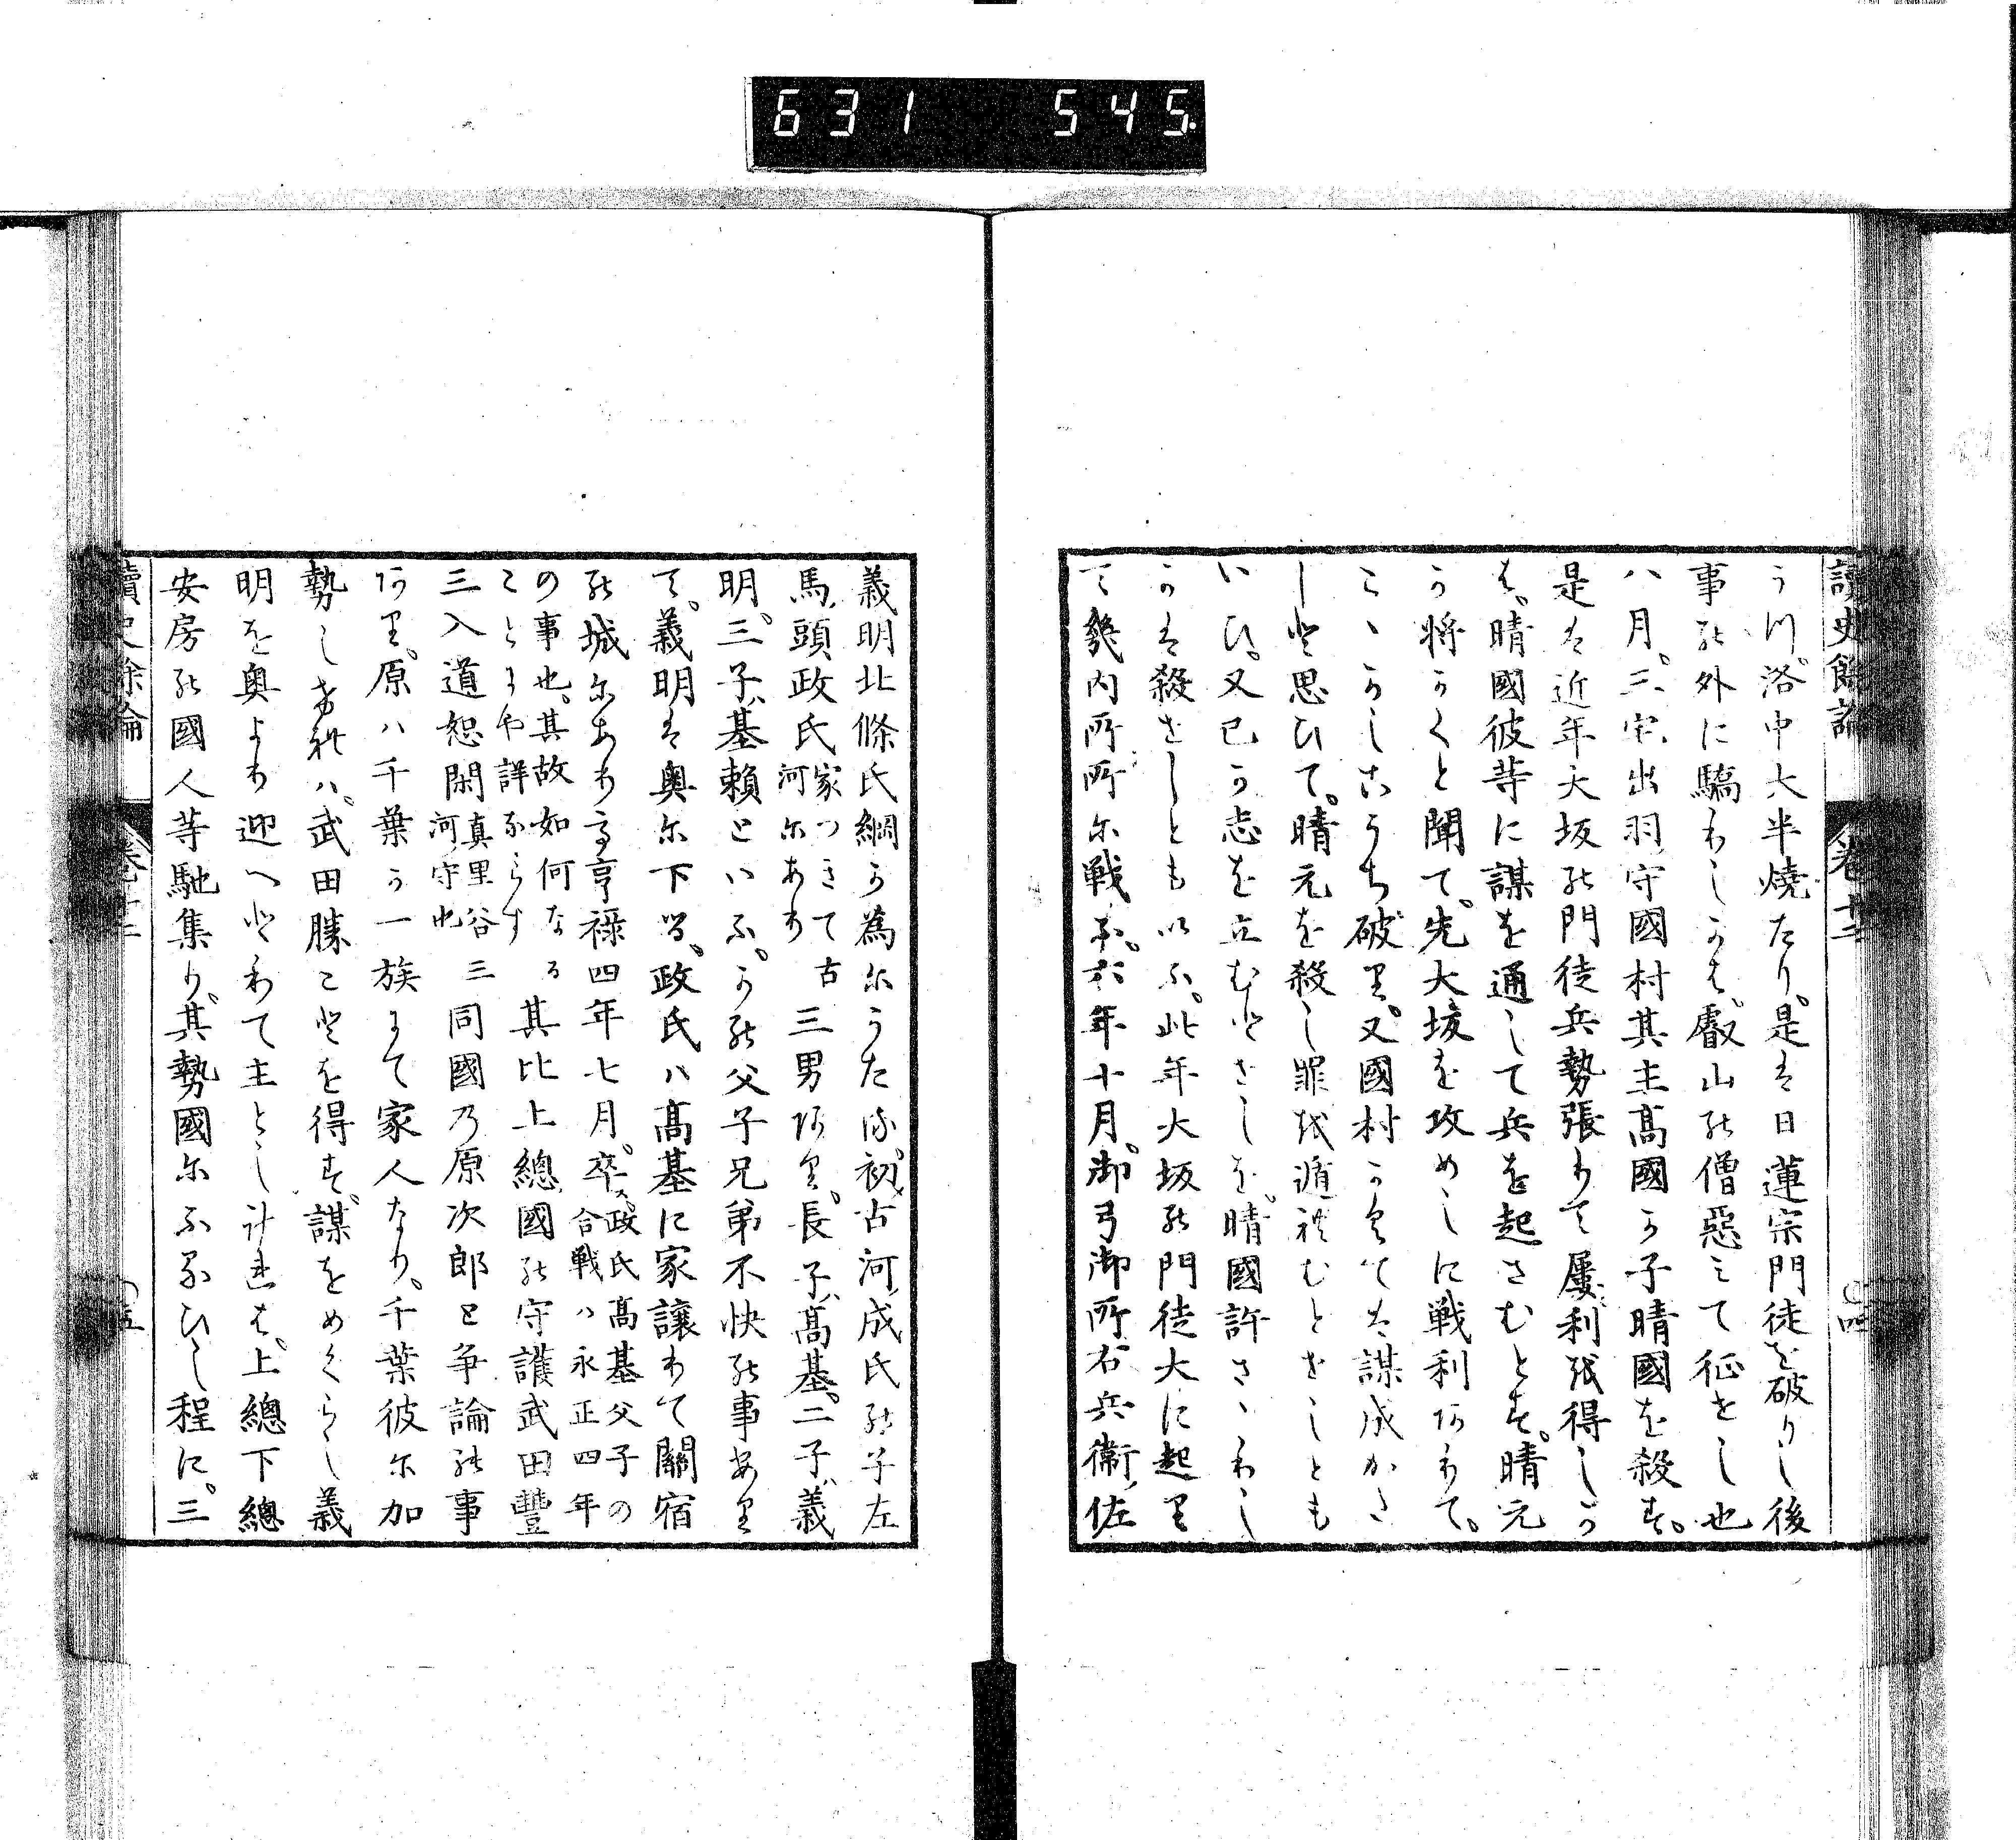 631 545
讀史餘論 卷十二
うつ。洛中大半燒たり。是は日蓮宗門徒を破りし後
事の外に驕りしかば、叡山の僧惡みて征せし也
八月。三宅出羽守國村其主高國が子晴國を殺す。
是は近年大坂の門徒兵勢張りて屢利を得しか
ば、晴國彼等に謀を通して兵を起さむとす。晴元
が將かくと聞て。先大坂を攻めしに戰利ありて。
こゝかしこうち破り。又國村かくては謀成かた
しと思ひて。晴元を殺し罪を遁れむとせしとも
いひ。又己が志を立むとせしを。晴國許さゝりし
かは殺せしとも以ふ。此年大坂の門徒大に起り
て畿内所所に戰ふ。六年十月。御弓御所右兵衞佐
義明北條氏綱が爲にうたる。初古河成氏の子左
馬頭政氏家つきて古河にあり三男あり。長子高基。二子義
明。三子基頼といふ。かの父子兄弟不快の事あり
て。義明は奥に下る。政氏ハ高基に家讓りて關宿
の城にありて享祿四年七月。卒ス。政氏高基父子の合戰ハ永正四年
の事也。其故如何なることにや詳ならす其比上總國の守護武田豐
三入道恕閑真里谷三河守也同國乃原次郎と爭論の事
あり。原ハ千葉が一族にて家人なり。千葉彼に加
勢しければ、武田勝ことを得す。謀をめくらし義
明を奥より迎へとりて主とし計れば、上總下總
安房の國人等馳集り。其勢國にふるひし程に。三
讀史餘論 卷十二 五